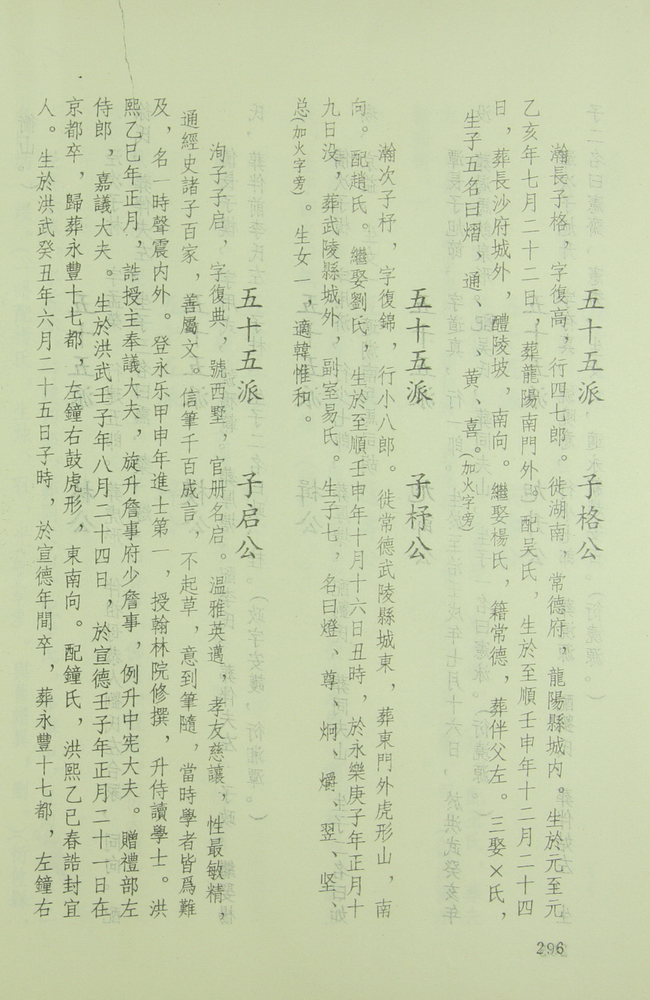 五十五派　子格公
瀚長子格，字復高，行四七郎。徙湖南，常德府，龍陽縣城内。生於元至元
乙亥年七月二十二日，葬龍陽南門外。配吴氏，生於至順壬申年十二月二十四
日，葬長沙府城外，醴陵坡，南向。繼娶楊氏，籍常德，葬伴父左。三娶×氏，
生子五名曰熠、通、　、黄、喜。(如火字旁)
五十五派　子杼公
瀚次子杼，字復錦，行小八郎。徙常德武陵縣城東，葬東門外虎形山，南
向。配趙氏。繼娶劉氏，生於至順壬申年十月十六日丑時，於永樂庚子年正月十
九日没，葬武陵縣城外，副室易氏。生子七，名曰燈、尊、炯、爝、翌、坚、
总(加火字旁)。生女一，適韓惟和。
五十五派　子启公
洵子子启，字復典，號西墅，官册名启。温雅英邁，孝友慈讓，性最敏精，
通經史諸子百家，善屬文。信筆千百成言，不起草，意到筆隨，當時學者皆爲難
及，名一時聲震内外。登永乐甲申年進士第一，授翰林院修撰，升侍讀學士。洪
熙乙巳年正月，誥授主奉議大夫，旋升詹事府少詹事，例升中宪大夫。贈禮部左
侍郎，嘉議大夫。生於洪武壬子年八月二十四日，於宣德壬子年正月二十一日在
京都卒，歸葬永豐十七都，左鐘右鼓虎形，東南向。配鐘氏，洪熙乙巳春誥封宜
人。生於洪武癸丑年六月二十五日子時，於宣德年間卒，葬永豐十七都，左鐘右
296